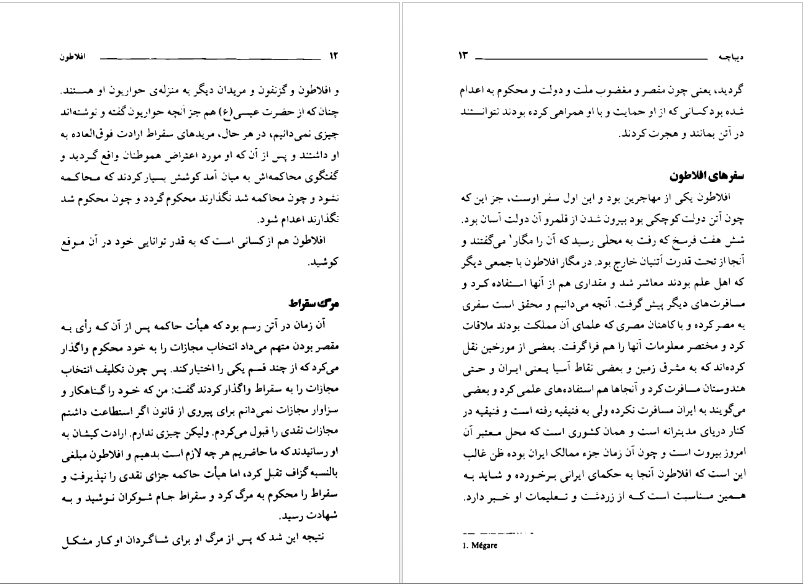 ۱۲ افلاطون
و افلاطون و گزنفون و مریدان دیگر به منزله‌ی حواریون او هستند.
چنان که از حضرت عیسی(ع) هم جز آنچه حواریون گفته و نوشته‌اند
چیزی نمی‌دانیم، در هر حال، مریدهای سقراط ارادت فوق‌العاده به
او داشتند و پس از آن که او مورد اعتراض هموطنان واقع گردید و
گفتگوی محاکمه‌اش به میان آمد کوشش بسیار کردند که محاکمه
نشود و چون محاکمه شد نگذارند محکوم گردد و چون محکوم شد
نگذارند اعدام شود.
افلاطون هم از کسانی است که به قدر توانایی خود در آن موقع
کوشید.
مرگ سقراط
آن زمان در آتن رسم بود که هیأت حاکمه پس از آن که رأی به
مقصر بودن متهم می‌داد انتخاب مجازات را به خود محکوم واگذار
می‌کرد که از چند قسم یکی را اختیار کند. پس چون تکلیف انتخاب
مجازات را به سقراط واگذار کردند گفت: من که خود را گناهکار و
سزاوار مجازات نمی‌دانم برای پیروی از قانون اگر استطاعت داشتم
مجازات نقدی را قبول می‌کردم. ولیکن چیزی ندارم. ارادت کیشان به
او رسانیدند که ما حاضریم هر چه لازم است بدهیم و افلاطون مبلغی
بالنسبه گزاف تقبل کرد، اما هیأت حاکمه جزای نقدی را نپذیرفت و
سقراط را محکوم به مرگ کرد و سقراط جام شوکران نوشید و به
شهادت رسید.
نتیجه این شد که پس از مرگ او برای شاگردان او کار مشکل
دیباچه ۱۳
گردید، یعنی چون مقصر و مغضوب ملت و دولت و محکوم به اعدام
شده بود کسانی که از او حمایت و با او همراهی کرده بودند نتوانستند
در آتن بمانند و هجرت کردند.
سفرهای افلاطون
افلاطون یکی از مهاجرین بود و این اول سفر اوست، جز این که
چون آتن دولت کوچکی بود بیرون شدن از قلمرو آن دولت آسان بود.
شش هفت فرسخ که رفت به محلی رسید که آن را مگار۱ می‌گفتند و
آنجا از تحت قدرت آتنیان خارج بود. در مگار افلاطون با جمعی دیگر
که اهل علم بودند معاشر شد و مقداری هم از آنها استفاده کرد و
مسافرت‌های دیگر پیش گرفت. آنچه می‌دانیم و محقق است سفری
به مصر کرده و با کاهنان مصری که علمای آن مملکت بودند ملاقات
کرد و مختصر معلومات آنها را هم فرا گرفت. بعضی از مورخین نقل
کرده‌اند که به مشرق زمین و بعضی نقاط آسیا یعنی ایران و حتی
هندوستان مسافرت کرد و آنجاها هم استفاده‌های علمی کرد و بعضی
می‌گویند به ایران مسافرت نکرده ولی به فنیقیه رفته است و فنیقیه در
کنار دریای مدیترانه است و همان کشوری است که محل معتبر آن
امروز بیروت است و چون آن زمان جزء ممالک ایران بوده ظن غالب
این است که افلاطون آنجا به حکمای ایرانی برخورده و شاید به
همین مناسبت است که از زردشت و تعلیمات او خبر دارد.
1. Mégare